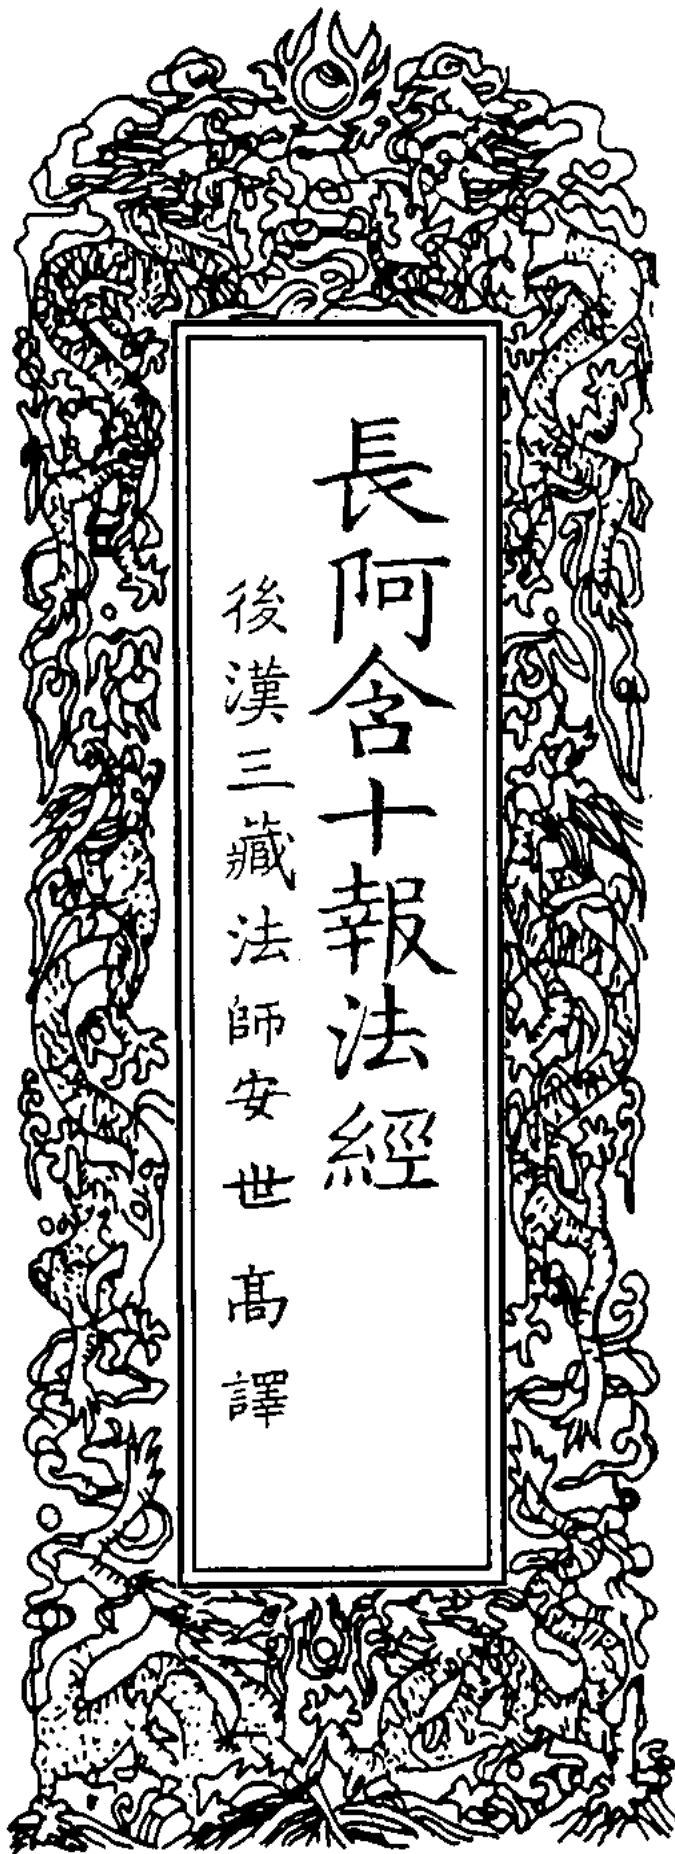 長阿含十報法經
後漢三藏法師安世髙譯